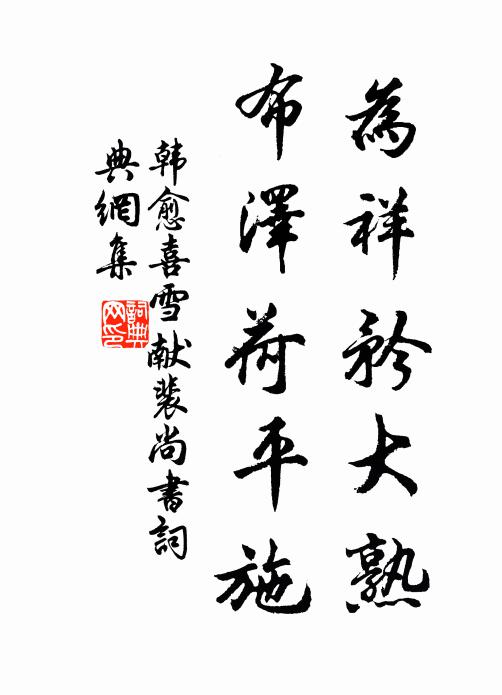 為祥矜大熟
布澤荷平施
韩愈喜雪献裴尚書詞
典網集
詞典
网印